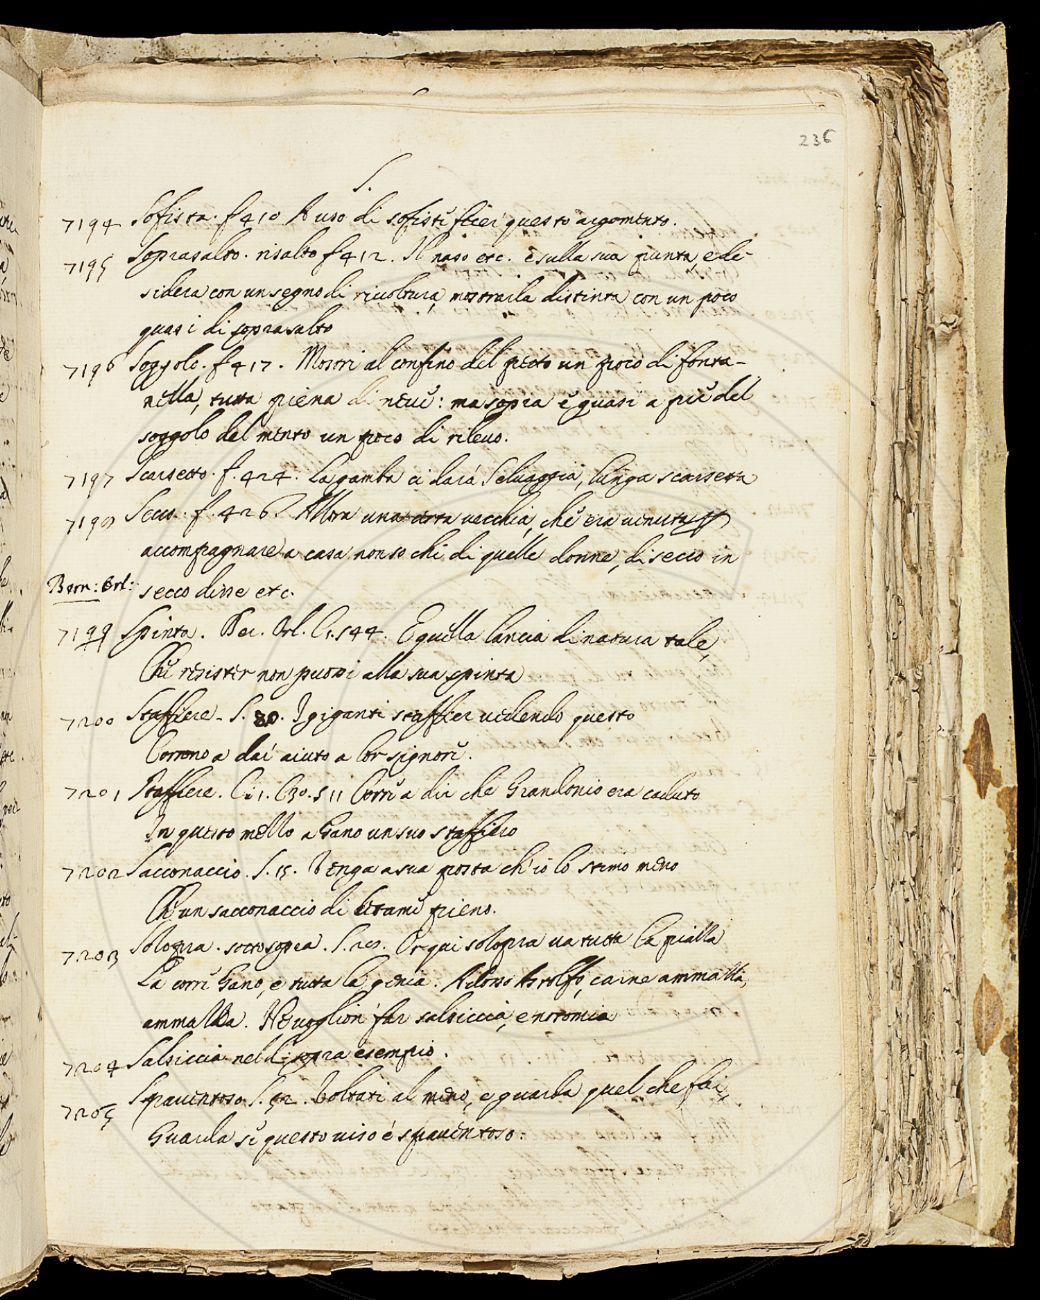 236
S.
7194 Sofista. f 410 A uso di sofisti ficci questo argomento.
7195 Soprasalto. risalto f 412. Il naso etc. è sulla sua punta, e de-
sidera con un segno di rivoltura, mostrarla distinta con un poco
quasi di soprasalto
7196 Soggolo. f 417. Mostri al confino del petto un poco di fonta-
nella, tutta piena di neve: ma sopra è quasi a piè del
soggolo del mento un poco di rilievo.
7197 Scarsetto. f. 424. La gamba ci darà Selvaggia, lunga scarsetta
7198 Secco. f. 426. Allora una certa vecchia, che era venuta p
accompagnare a casa non so chi di quelle donne, di secco in
Bern: Orl: secco disse etc.
7199 Spinta. Orl. C. 1. S 44. E quella lancia di natura tale,
Che resister non puossi alla sua spinta
7200 Staffiere. S. 80. I giganti staffier vedendo questo
Corrono a dar aiuto a lor signori.
7201 Staffiere. C. 1. C 30. S 11 Corre a dir che Grandonio era caduto
In questo mezzo a Gano un suo staffiero
7202 Sacconaccio. S. 15. Venga a sua posta ch'io lo stimo meno
Ch'un sacconaccio di letame pieno.
7203 Solopra. sottosopra. S. Or qui solopra va tutta la pialla
La corre Gano, e tutta la genia. Astolfo, carne ammalla,
ammalla. Ne voglion far salsiccia, e notomia
7204 Salsiccia nel di sopra esempio.
7205 Spaventoso. S. 52. Voltati al meno, e guarda quel che fai,
Guarda se questo viso è spaventoso.